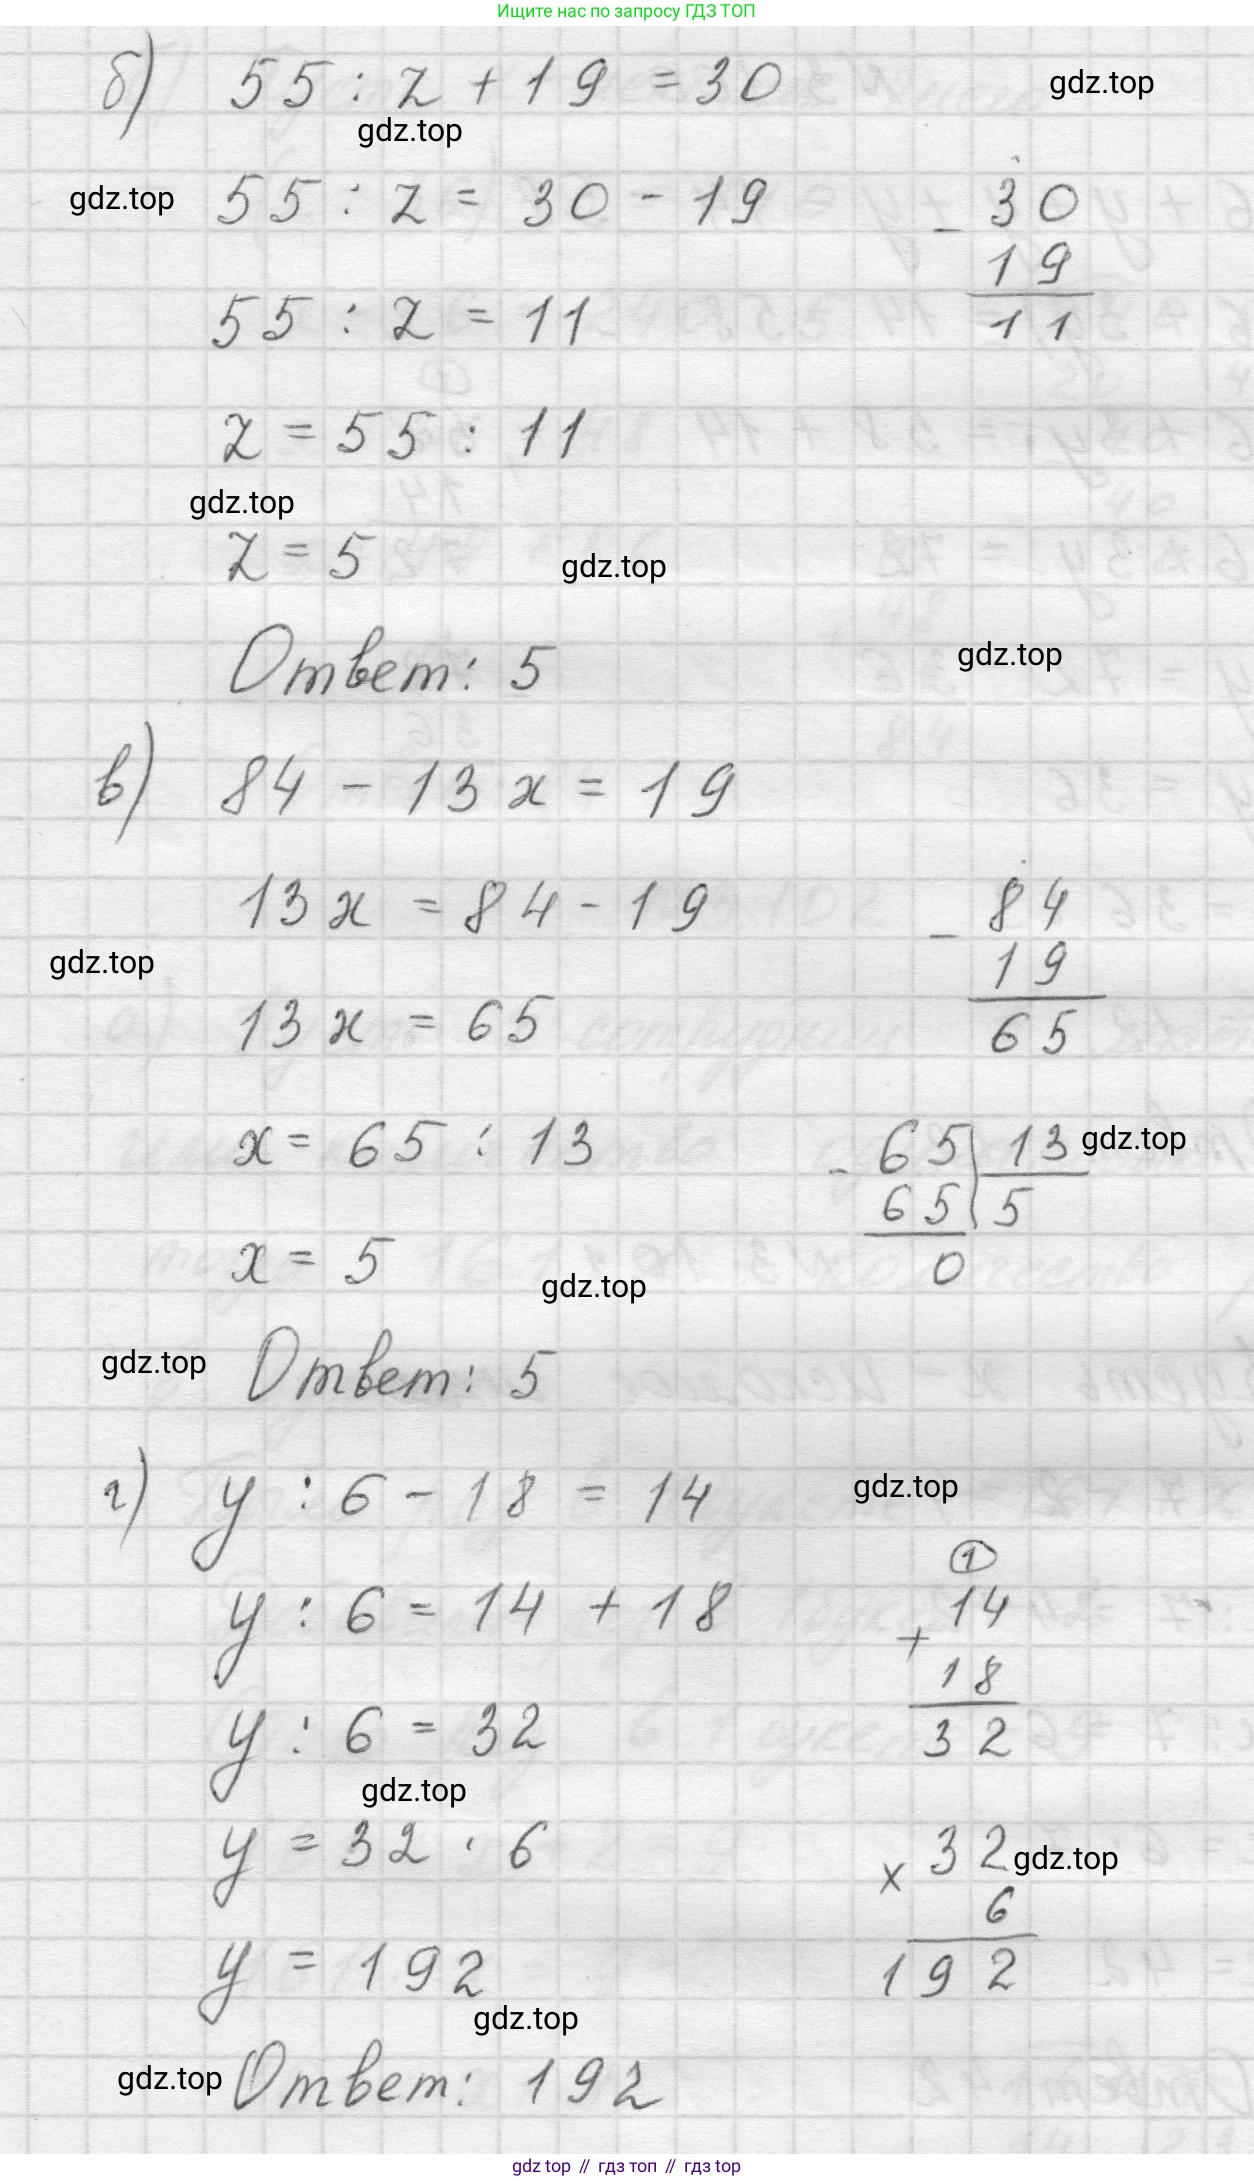 Ищите нас по запросу ГДЗ ТОП
б) 55 : z + 19 = 30
gdz.top
gdz.top
gdz.top
55 : z = 30 - 19
- 30
19
11
55 : z = 11
z = 55 : 11
gdz.top
z = 5
gdz.top
Ответ: 5
gdz.top
в) 84 - 13x = 19
13x = 84 - 19
- 84
19
65
gdz.top
13x = 65
x = 65 : 13
- 65 | 13
65 | 5
0
gdz.top
x = 5
gdz.top
gdz.top
Ответ: 5
г) y : 6 - 18 = 14
gdz.top
y : 6 = 14 + 18
1
+ 14
18
32
y : 6 = 32
gdz.top
y = 32 · 6
x 32
6
192
gdz.top
y = 192
gdz.top
gdz.top
Ответ: 192
gdz top // гдз топ // gdz top